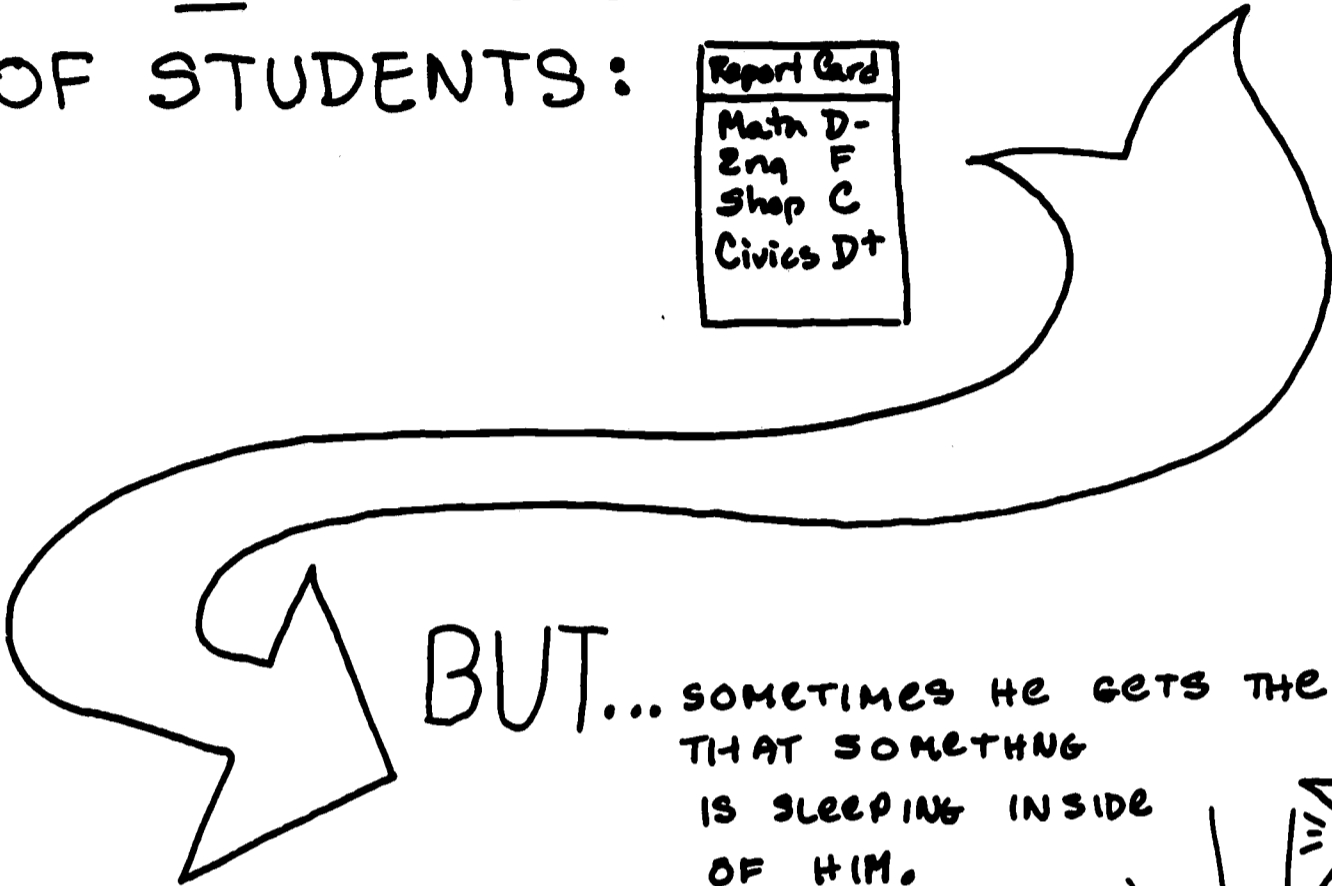 OF STUDENTS:
Report Card
Math D-
Eng F
Shop C
Civics D+
BUT... SOMETIMES HE GETS THE
THAT SOMETHNG
IS SLEEPING INSIDE
OF HIM.